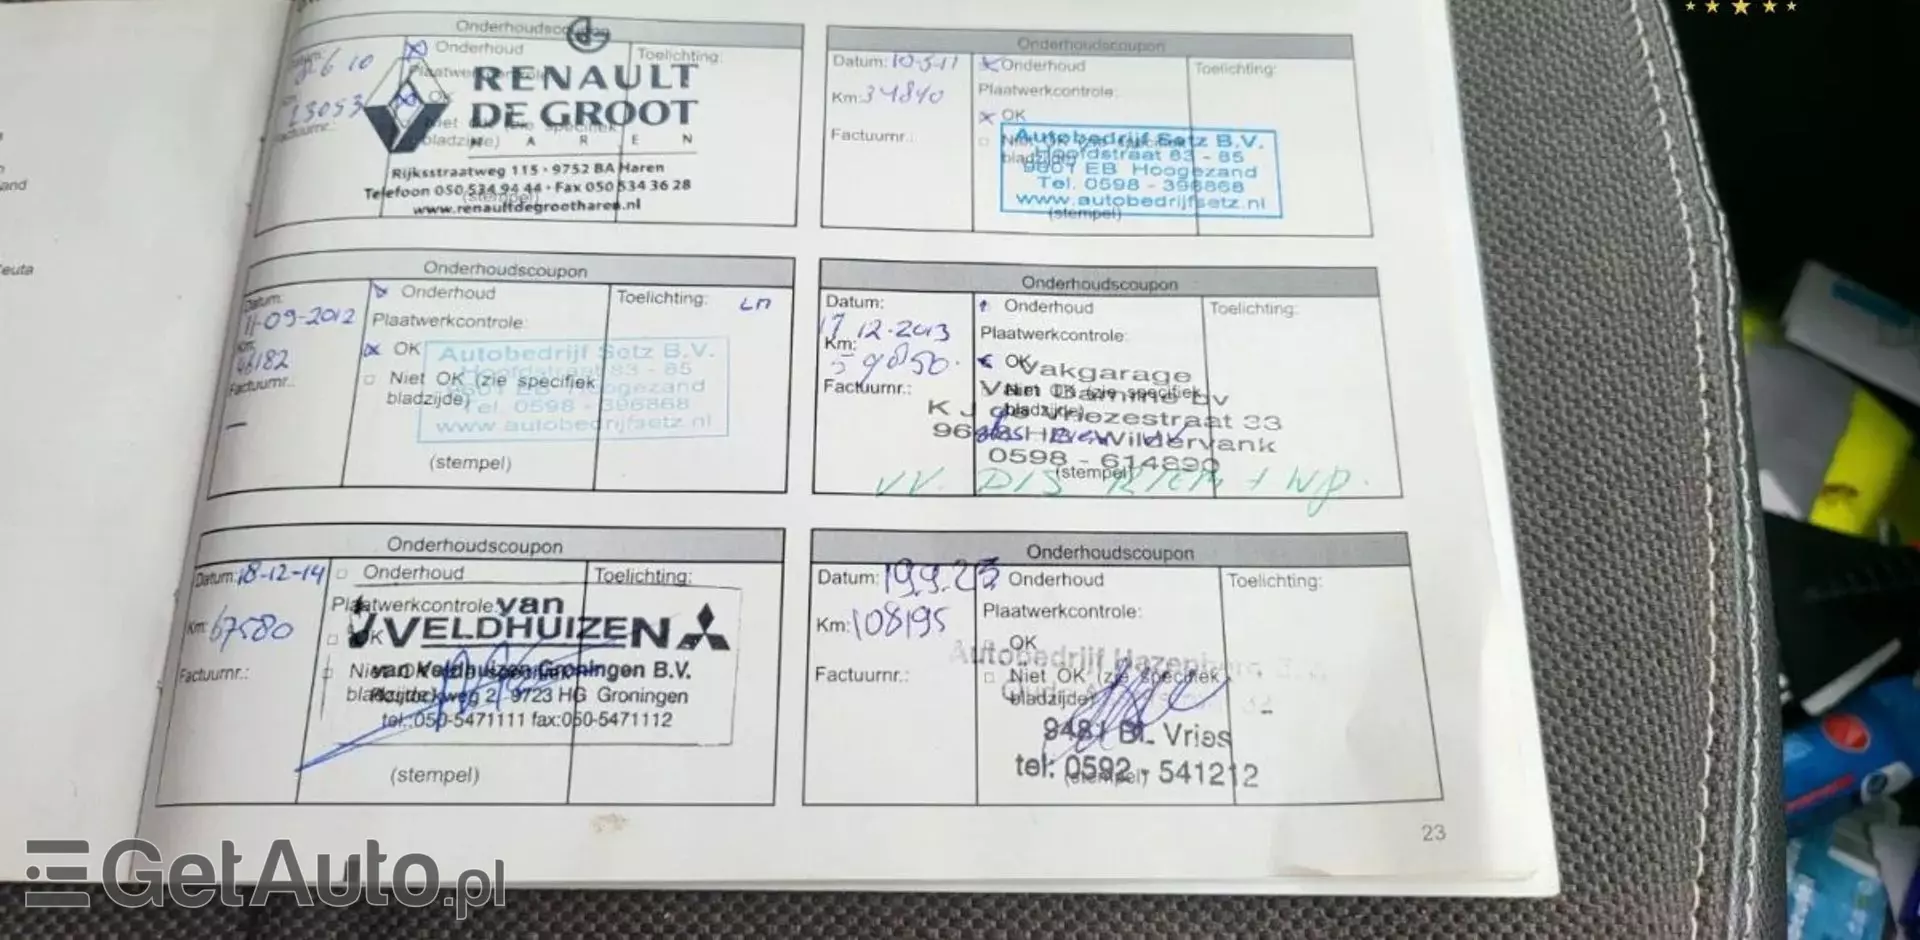 Onderhoudscoupon
6 10
Onderhoud
Toelichting:
23053
OK
Factuurnr.:
RENAULT
DE GROOT
HAREN
Rijksstraatweg 115 · 9752 BA Haren
Telefoon 050 534 94 44 · Fax 050 534 36 28
(stempel)
www.renaultdegrootharen.nl
Onderhoudscoupon
Datum: 10-5-11
Onderhoud
Toelichting:
Km: 34840
Plaatwerkcontrole:
OK
Factuurnr.:
Autobedrijf Setz B.V.
Hoofdstraat 83 - 85
9601 EB Hoogezand
Tel. 0598 - 396868
www.autobedrijfsetz.nl
(stempel)
Onderhoudscoupon
Datum:
11-09-2012
Onderhoud
Toelichting: LM
Plaatwerkcontrole:
Km:
46182
OK
Factuurnr.:
Niet OK (zie specifiek
bladzijde)
Autobedrijf Setz B.V.
Hoofdstraat 83 - 85
9601 EB Hoogezand
Tel. 0598 - 396868
www.autobedrijfsetz.nl
(stempel)
Onderhoudscoupon
Datum:
17 12-2013
Onderhoud
Toelichting:
Plaatwerkcontrole:
Km:
59850.
OK
Factuurnr.:
Niet OK (zie specifiek
bladzijde)
Vakgarage
K J de Vriezestraat 33
Wildervank
0598 - 614890
(stempel)
VV. DIS RIEM + WP.
Onderhoudscoupon
Datum: 18-12-14
Onderhoud
Toelichting:
Plaatwerkcontrole:
Km: 67580
OK
Factuurnr.:
van
VELDHUIZEN
van Veldhuizen Groningen B.V.
9723 HG Groningen
tel.:050-5471111 fax:050-5471112
(stempel)
Onderhoudscoupon
Datum: 19.9.23
Onderhoud
Toelichting:
Km: 108195
Plaatwerkcontrole:
OK
Factuurnr.:
Niet OK (zie specifiek
bladzijde)
Autobedrijf
9481 BL Vries
tel: 0592 - 541212
(stempel)
23
GetAuto.pl